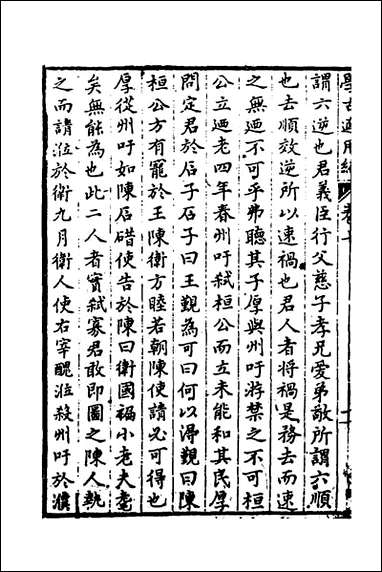 學古適用編
謂六逆也君義臣行父慈子孝兄愛弟敬所謂六順
也去順效逆所以速禍也君人者將禍是務去而速
之無迺不可乎弗聽其子厚與州吁游禁之不可桓
公立迺老四年春州吁弒桓公而立未能和其民厚
問定君於石子石子曰王覲為可曰何以得覲曰陳
桓公方有寵於王陳衛方睦若朝陳使請必可得也
厚從州吁如陳石碏使告於陳曰衛國褊小老夫耄
矣無能為也此二人者實弒寡君敢即圖之陳人執
之而請涖於衛九月衛人使右宰醜涖殺州吁於濮